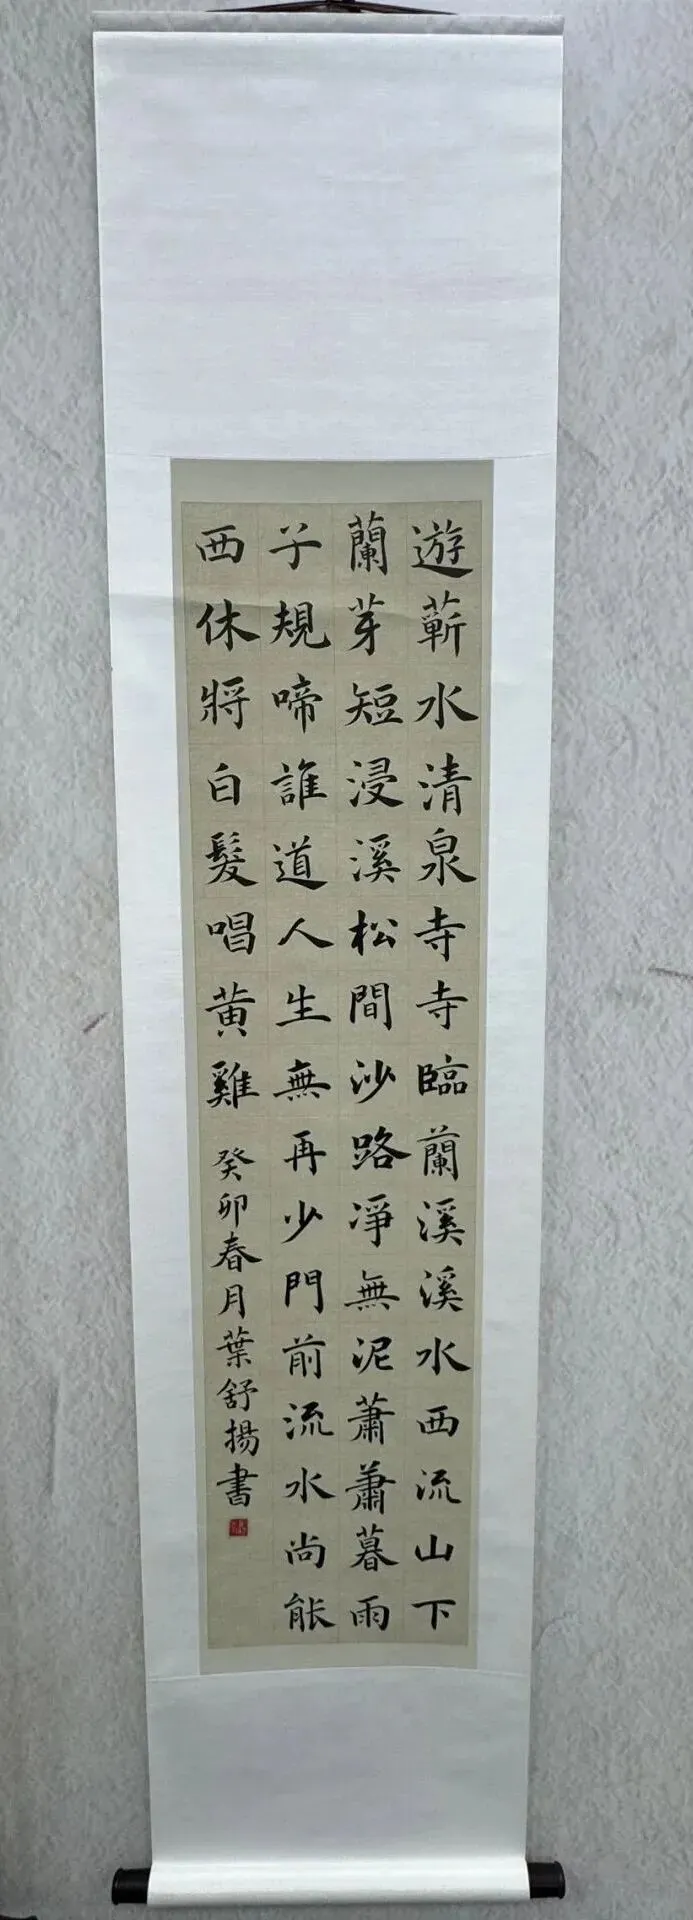 遊蘄水清泉寺寺臨蘭溪溪水西流山下
蘭芽短浸溪松間沙路淨無泥蕭蕭暮雨
子規啼誰道人生無再少門前流水尚能
西休將白髮唱黃雞
癸卯春月葉舒揚書